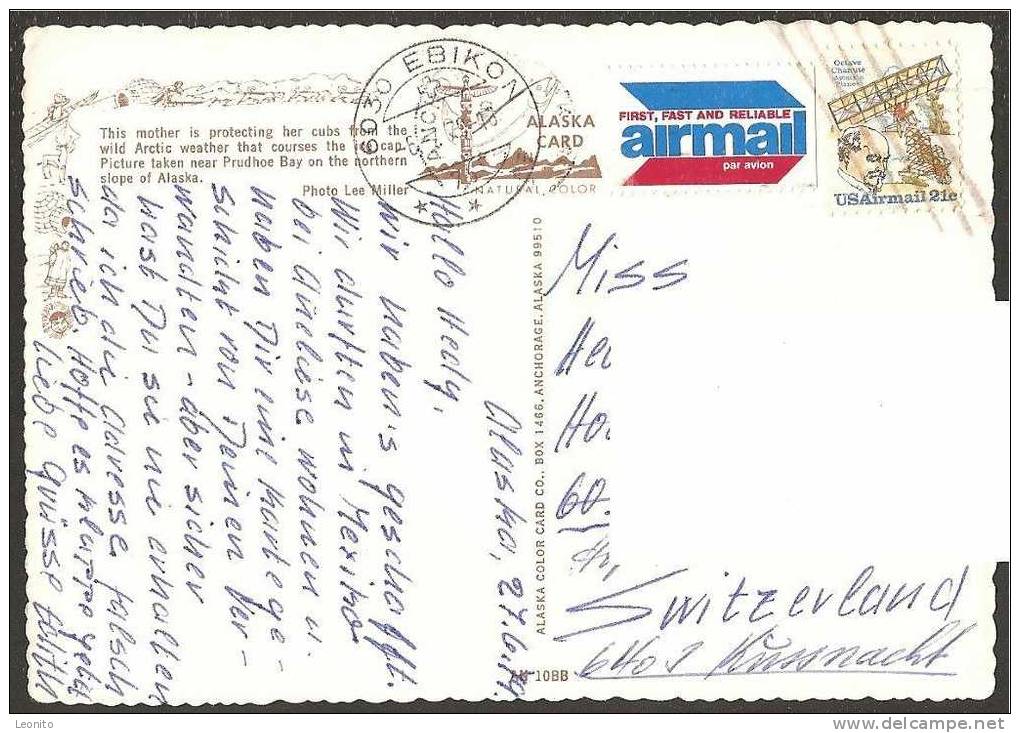 This mother is protecting her cubs from the
wild Arctic weather that courses the ice cap.
Picture taken near Prudhoe Bay on the northern
slope of Alaska.
Photo Lee Miller
6030 EBIKON
ALASKA
CARD
NATURAL COLOR
FIRST, FAST AND RELIABLE
airmail
par avion
Octave
Chanute
Aviation
Pioneer
USAirmail 21c
Alaska, 27.6.
Hallo Hedy,
Wir haben's geschafft.
Wir durften in Mexiko
bei Aneliese wohnen u.
haben Dir eine Karte ge-
schickt von Deinen Ver-
wandten - aber sicher
hast Du sie nie erhalten
da ich die Adresse falsch
schrieb. Hoffe es
Liebe Grüsse Edith
ALASKA COLOR CARD CO., BOX 1466, ANCHORAGE, ALASKA 99510
AK 10BB
Miss
He
Ho
60
Switzerland
6403 Küssnacht
Leonito
www.delcampe.net